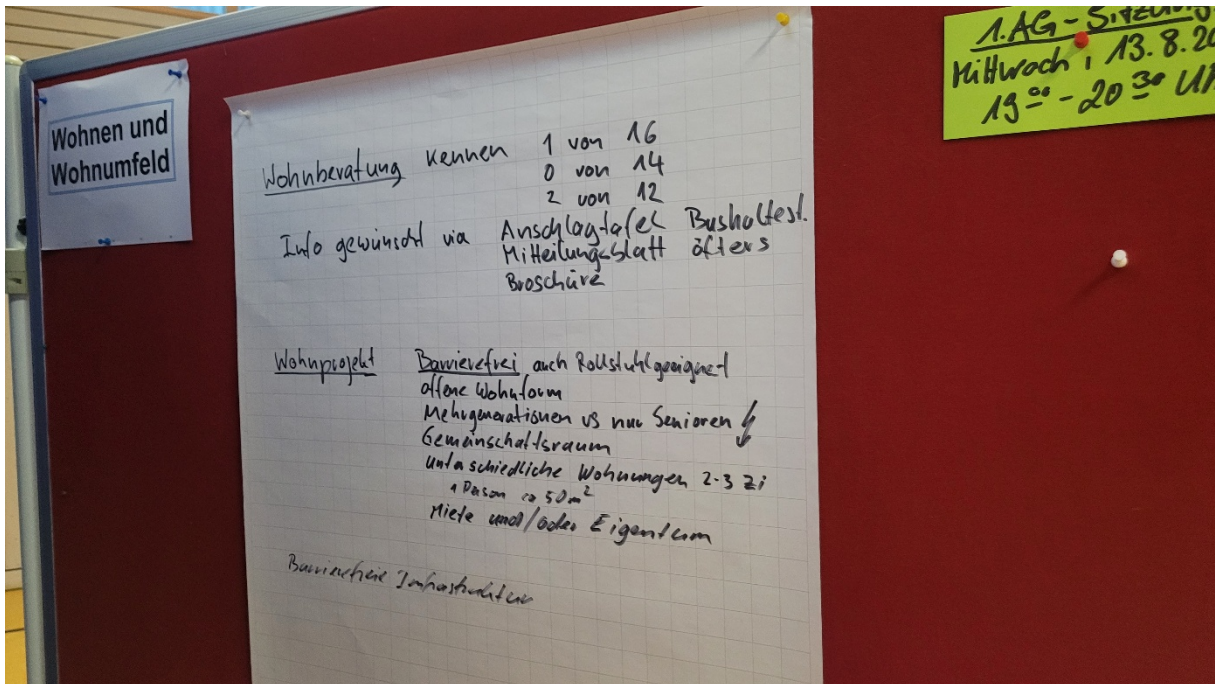 Wohnen und
Wohnumfeld
Wohnberatung kennen 1 von 16
0 von 14
2 von 12
Info gewünscht via Anschlagtafel Bushaltest.
Mitteilungsblatt öfters
Broschüre
Wohnprojekt Barrierefrei auch Rollstuhlgeeignet
offene Wohnform
Mehrgenerationen vs nur Senioren
Gemeinschaftsraum
unterschiedliche Wohnungen 2-3 Zi
1 Person ca 50 m²
Miete und/oder Eigentum
Barrierefreie Infrastruktur
1. AG-Sitzung
Mittwoch, 13.8.20
19 00 - 20 30 Uh